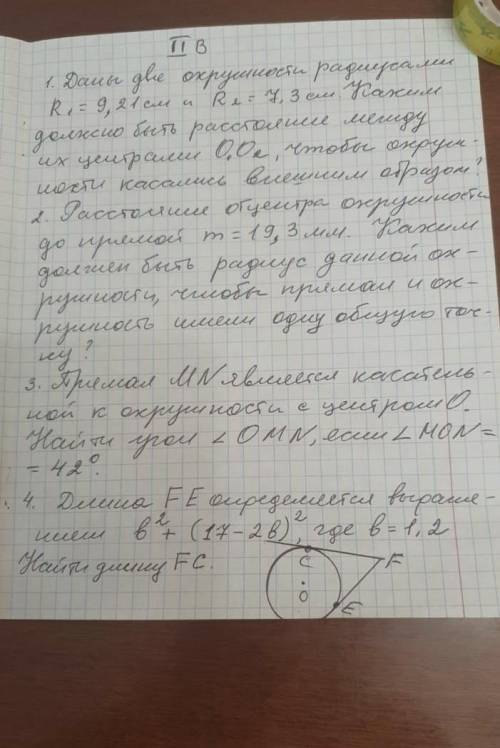 II В
1. Даны две окружности радиусами
R₁ = 9,21 см и R₂ = 7,3 см. Каким
должно быть расстояние между
их центрами O₁O₂, чтобы окруж-
ности касались внешним образом?
2. Расстояние от центра окружности
до прямой m = 19,3 мм. Каким
должен быть радиус данной ок-
ружности, чтобы прямая и ок-
ружность имели одну общую точ-
ку?
3. Прямая MN является касатель-
ной к окружности с центром О.
Найти угол ∠OMN, если ∠MON =
= 42°.
4. Длина FE определяется выраже-
нием в² + (17 - 2в)², где в = 1,2
Найти длину FC.
C
F
O
E